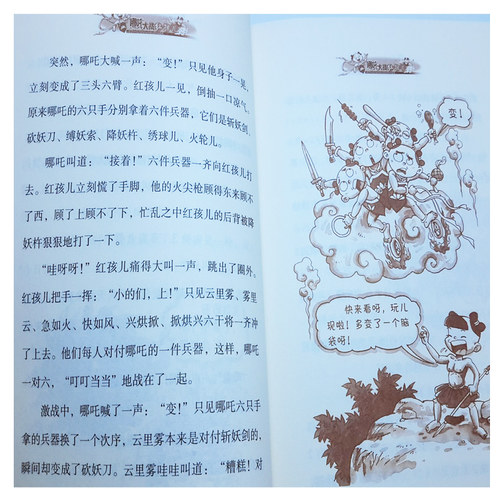 突然，哪吒大喊一声：“变！”只见他身子一晃，
立刻变成了三头六臂。红孩儿一见，倒抽一口凉气，
原来哪吒的六只手分别拿着六件兵器，它们是斩妖剑、
砍妖刀、缚妖索、降妖杵、绣球儿、火轮儿。
哪吒叫道：“接着！”六件兵器一齐向红孩儿打
去。红孩儿立刻慌了手脚，他的火尖枪顾得东来顾不
了西，顾了上顾不了下，忙乱之中红孩儿的后背被降
妖杵狠狠地打了一下。
“哇呀呀！”红孩儿痛得大叫一声，跳出了圈外。
红孩儿把手一挥：“小的们，上！”只见云里雾、雾里
云、急如火、快如风、兴烘掀、掀烘兴六干将一齐冲
了上去。他们每人对付哪吒的一件兵器，这样，哪吒
一对六，“叮叮当当”地战在了一起。
激战中，哪吒喊了一声：“变！”只见哪吒六只手
拿的兵器换了一个次序，云里雾本来是对付斩妖剑的，
瞬间却变成了砍妖刀。云里雾哇哇叫道：“糟糕！对
变！
快来看呀，玩儿
现啦！多变了一个脑
袋呀！